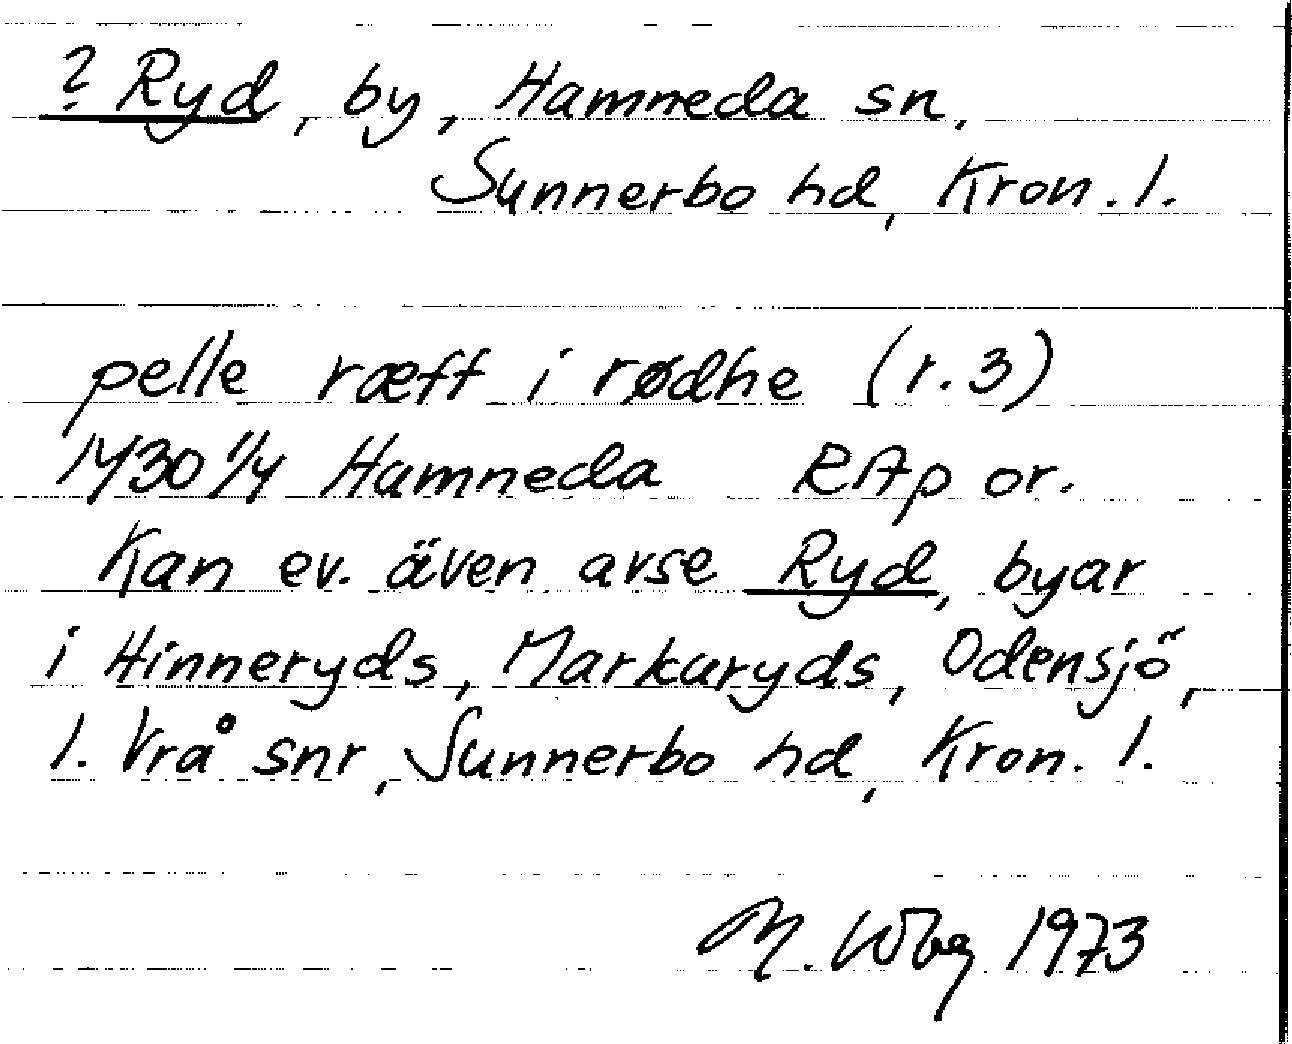 ? Ryd, by, Hamneda sn,
Sunnerbo hd, Kron. l.
pelle ræff i rødhe (r. 3)
1430 1/4 Hamneda RAp or.
Kan ev. även avse Ryd, byar
i Hinneryds, Markaryds, Odensjö,
l. Vrå snr, Sunnerbo hd, Kron. l.
M. Wbg 1973